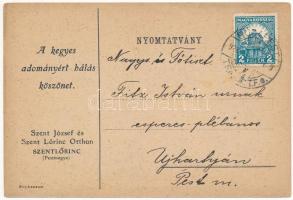 A kegyes
adományért hálás
köszönet.
Szent József és
Szent Lőrinc Otthon
SZENTLŐRINC
(Pestmegye)
NYOMTATVÁNY
MAGYARORSZÁG
2 FILLÉR 2
Nagys. és Főtiszt.
Fitz István urnak
esperes-plébános
Ujhartyán
Pest m.